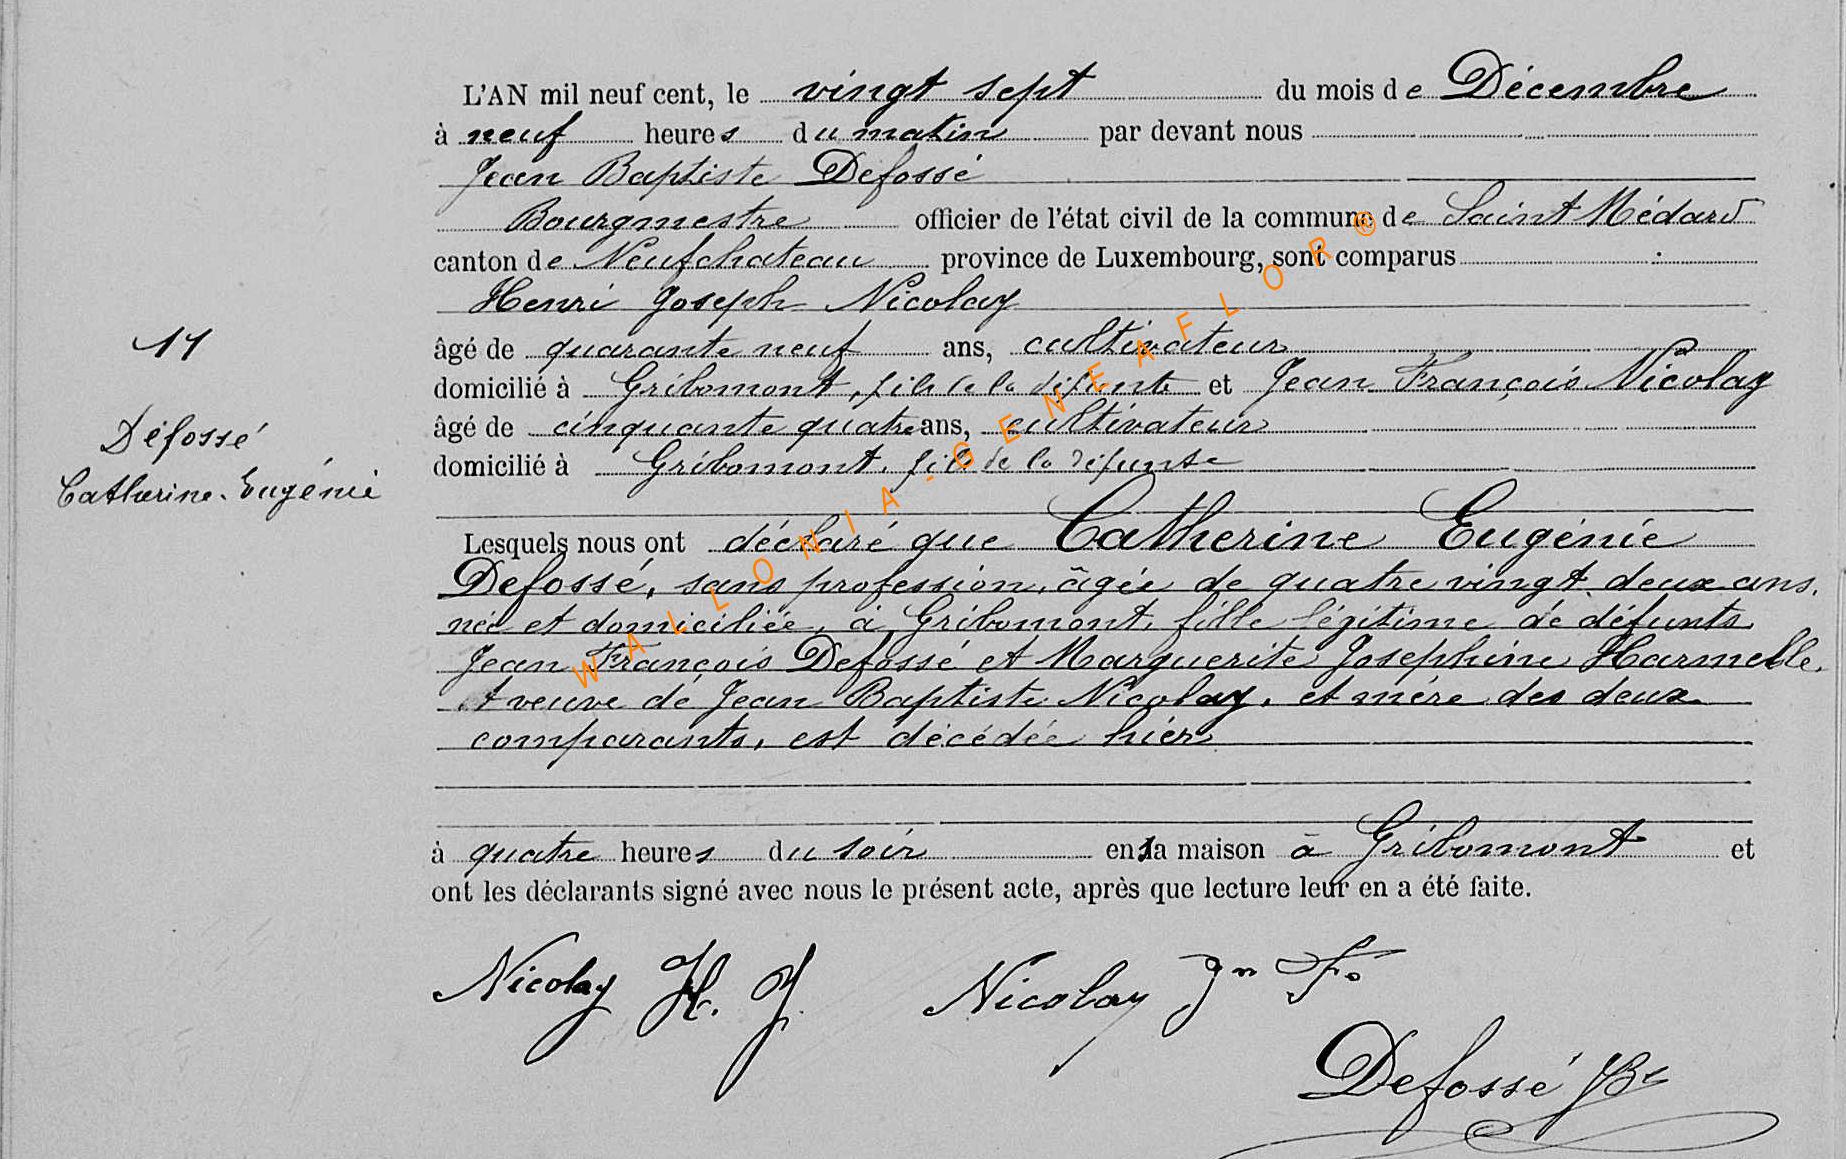 L'AN mil neuf cent, le vingt sept du mois de Décembre
à neuf heures du matin par devant nous
Jean Baptiste Defossé
Bourgmestre officier de l'état civil de la commune de Saint Médard
canton de Neufchateau province de Luxembourg, sont comparus
Henri Joseph Nicolay
11
âgé de quarante neuf ans, cultivateur
domicilié à Gribomont, fils de la défunte et Jean François Nicolay
âgé de cinquante quatre ans, cultivateur
Défossé
domicilié à Gribomont, fils de la défunte
Catherine-Eugénie
Lesquels nous ont déclaré que Catherine Eugénie
Defossé, sans profession, âgée de quatre vingt deux ans,
née et domiciliée, à Gribomont, fille légitime de défunts
Jean François Defossé et Marguerite Josephine Harmelle,
et veuve de Jean Baptiste Nicolay, et mère des deux
comparants, est décédée hier
à quatre heures du soir en sa maison à Gribomont et
ont les déclarants signé avec nous le présent acte, après que lecture leur en a été faite.
Nicolay H. J. Nicolay Jn Fs
Defossé JBt
WALLONIA-GENEAFLOR®